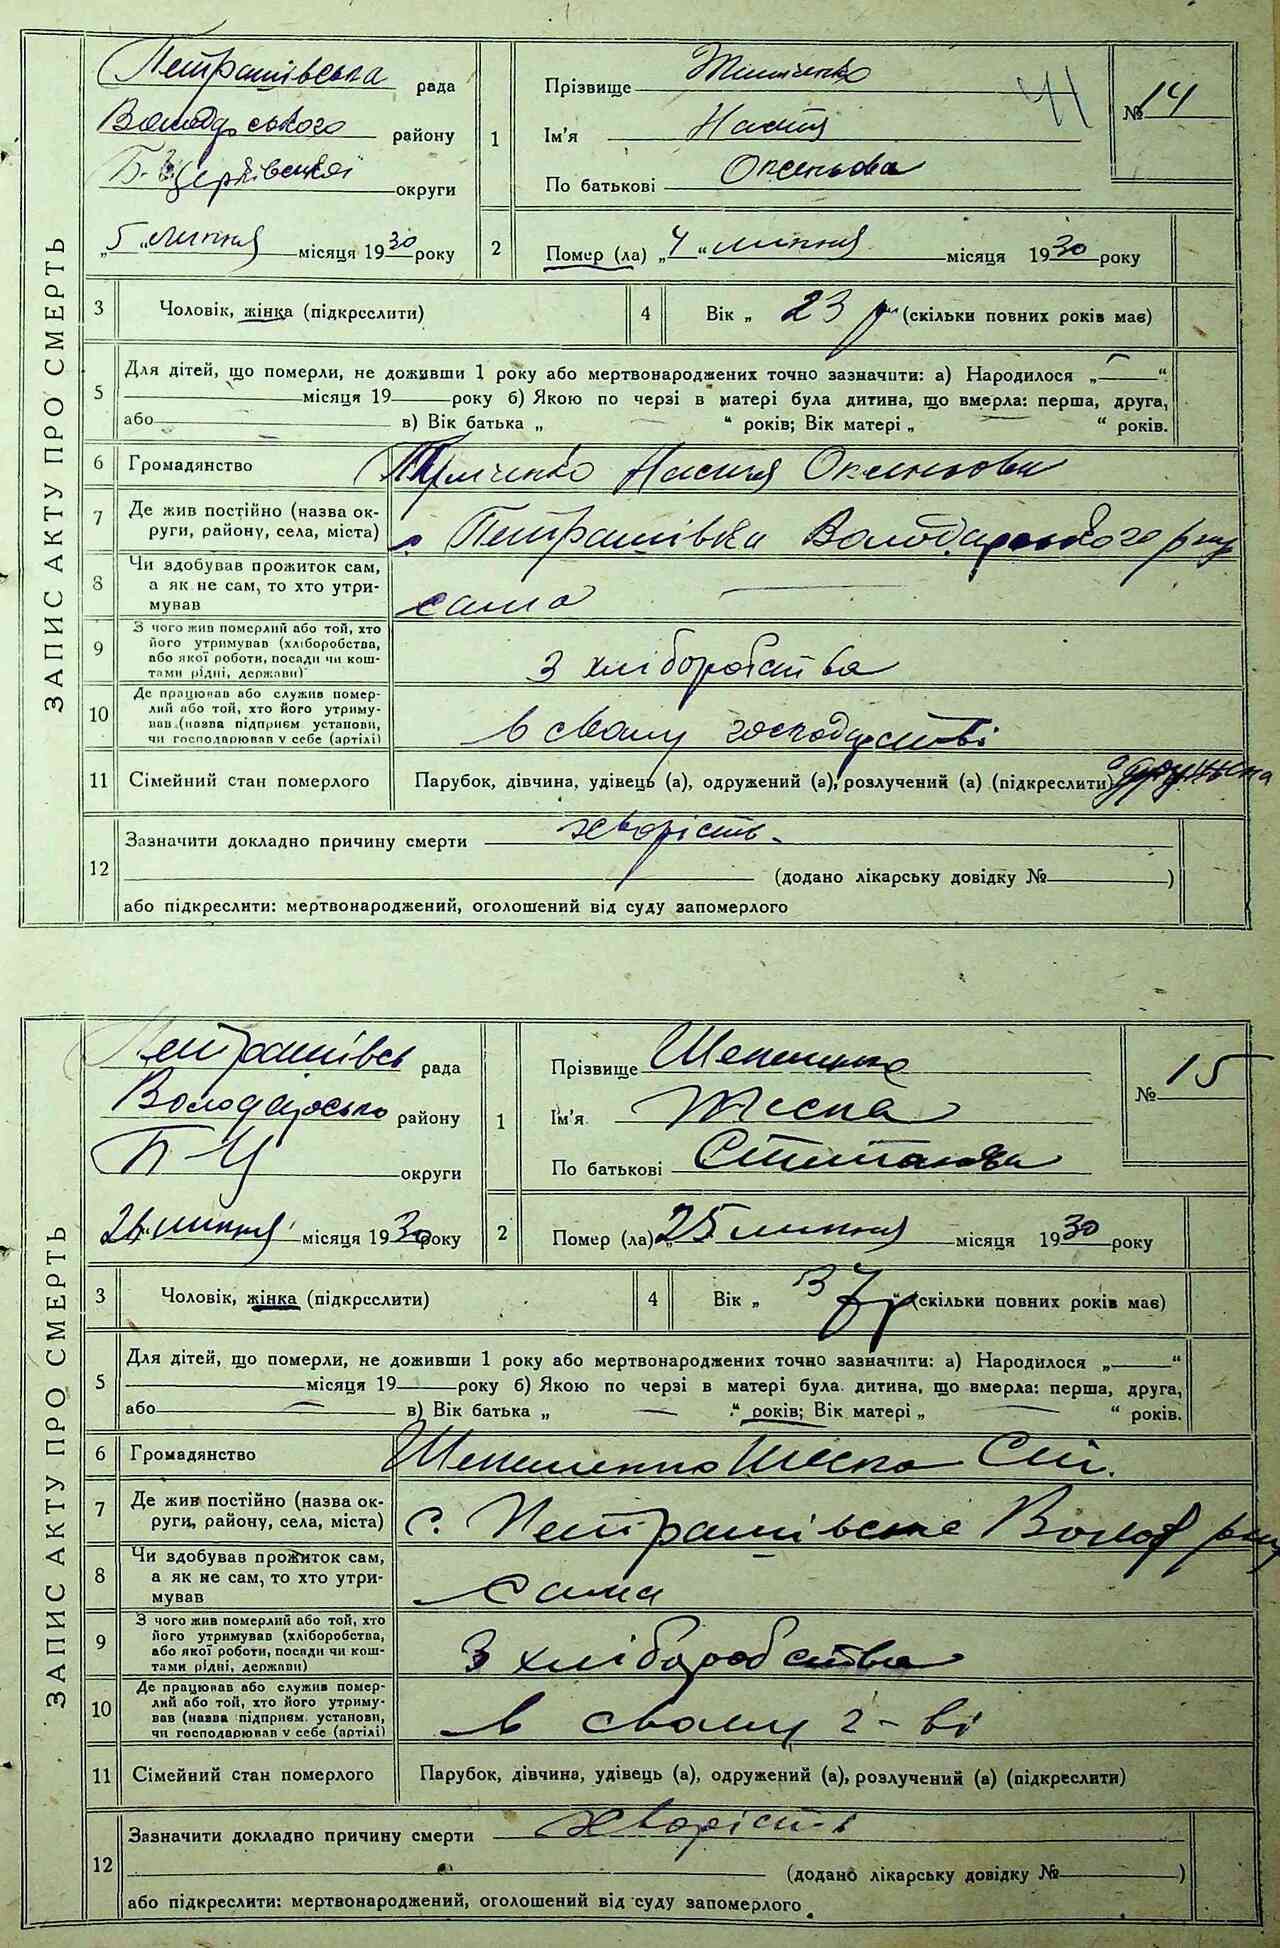 ЗАПИС АКТУ ПРО СМЕРТЬ
Петрашівська рада
Володарського району
Б-Церківської округи
„5 „ липня місяця 1930 року
1 Прізвище
Ім'я Настя
По батькові Оксеньова
№ 14
2 Помер (ла) „4 “ липня місяця 1930 року
3 Чоловік, жінка (підкреслити)
4 Вік „ 23 р (скільки повних років має)
5 Для дітей, що померли, не доживши 1 року або мертвонароджених точно зазначити: а) Народилося „ “
місяця 19 року б) Якою по черзі в матері була дитина, що вмерла: перша, друга,
або в) Вік батька „ “ років; Вік матері „ “ років.
6 Громадянство Настя Оксеньова
7 Де жив постійно (назва ок-
руги, району, села, міста) с Петрашівка Володарського р-ну
8 Чи здобував прожиток сам,
а як не сам, то хто утри-
мував сама
9 З чого жив померлий або той, хто
його утримував (хліборобства,
або якої роботи, посади чи кош-
тами рідні, держави) З хліборобства
10 Де працював або служив помер-
лий або той, хто його утриму-
вав (назва підприєм. установи,
чи господарював у себе (артілі) в свому господарстві
11 Сімейний стан померлого Парубок, дівчина, удівець (а), одружений (а), розлучений (а) (підкреслити)
12 Зазначити докладно причину смерти хворість
(додано лікарську довідку № )
або підкреслити: мертвонароджений, оголошений від суду запомерлого
ЗАПИС АКТУ ПРО СМЕРТЬ
Петрашівсь рада
Володарсько району
Б-Ц округи
26 липня місяця 1930 року
1 Прізвище
Ім'я
По батькові Степанова
№ 15
2 Помер (ла) „25 липня місяця 1930 року
3 Чоловік, жінка (підкреслити)
4 Вік „ 37 р “ (скільки повних років має)
5 Для дітей, що померли, не доживши 1 року або мертвонароджених точно зазначити: а) Народилося „ “
місяця 19 року б) Якою по черзі в матері була дитина, що вмерла: перша, друга,
або в) Вік батька „ “ років; Вік матері „ “ років.
6 Громадянство Ст.
7 Де жив постійно (назва ок-
руги, району, села, міста) с. Петрашівське Волод р-ну
8 Чи здобував прожиток сам,
а як не сам, то хто утри-
мував сама
9 З чого жив померлий або той, хто
його утримував (хліборобства,
або якої роботи, посади чи кош-
тами рідні, держави) З хліборобства
10 Де працював або служив помер-
лий або той, хто його утриму-
вав (назва підприєм. установи,
чи господарював у себе (артілі) в свому г-ві
11 Сімейний стан померлого Парубок, дівчина, удівець (а), одружений (а), розлучений (а) (підкреслити)
12 Зазначити докладно причину смерти хворість
(додано лікарську довідку № )
або підкреслити: мертвонароджений, оголошений від суду запомерлого